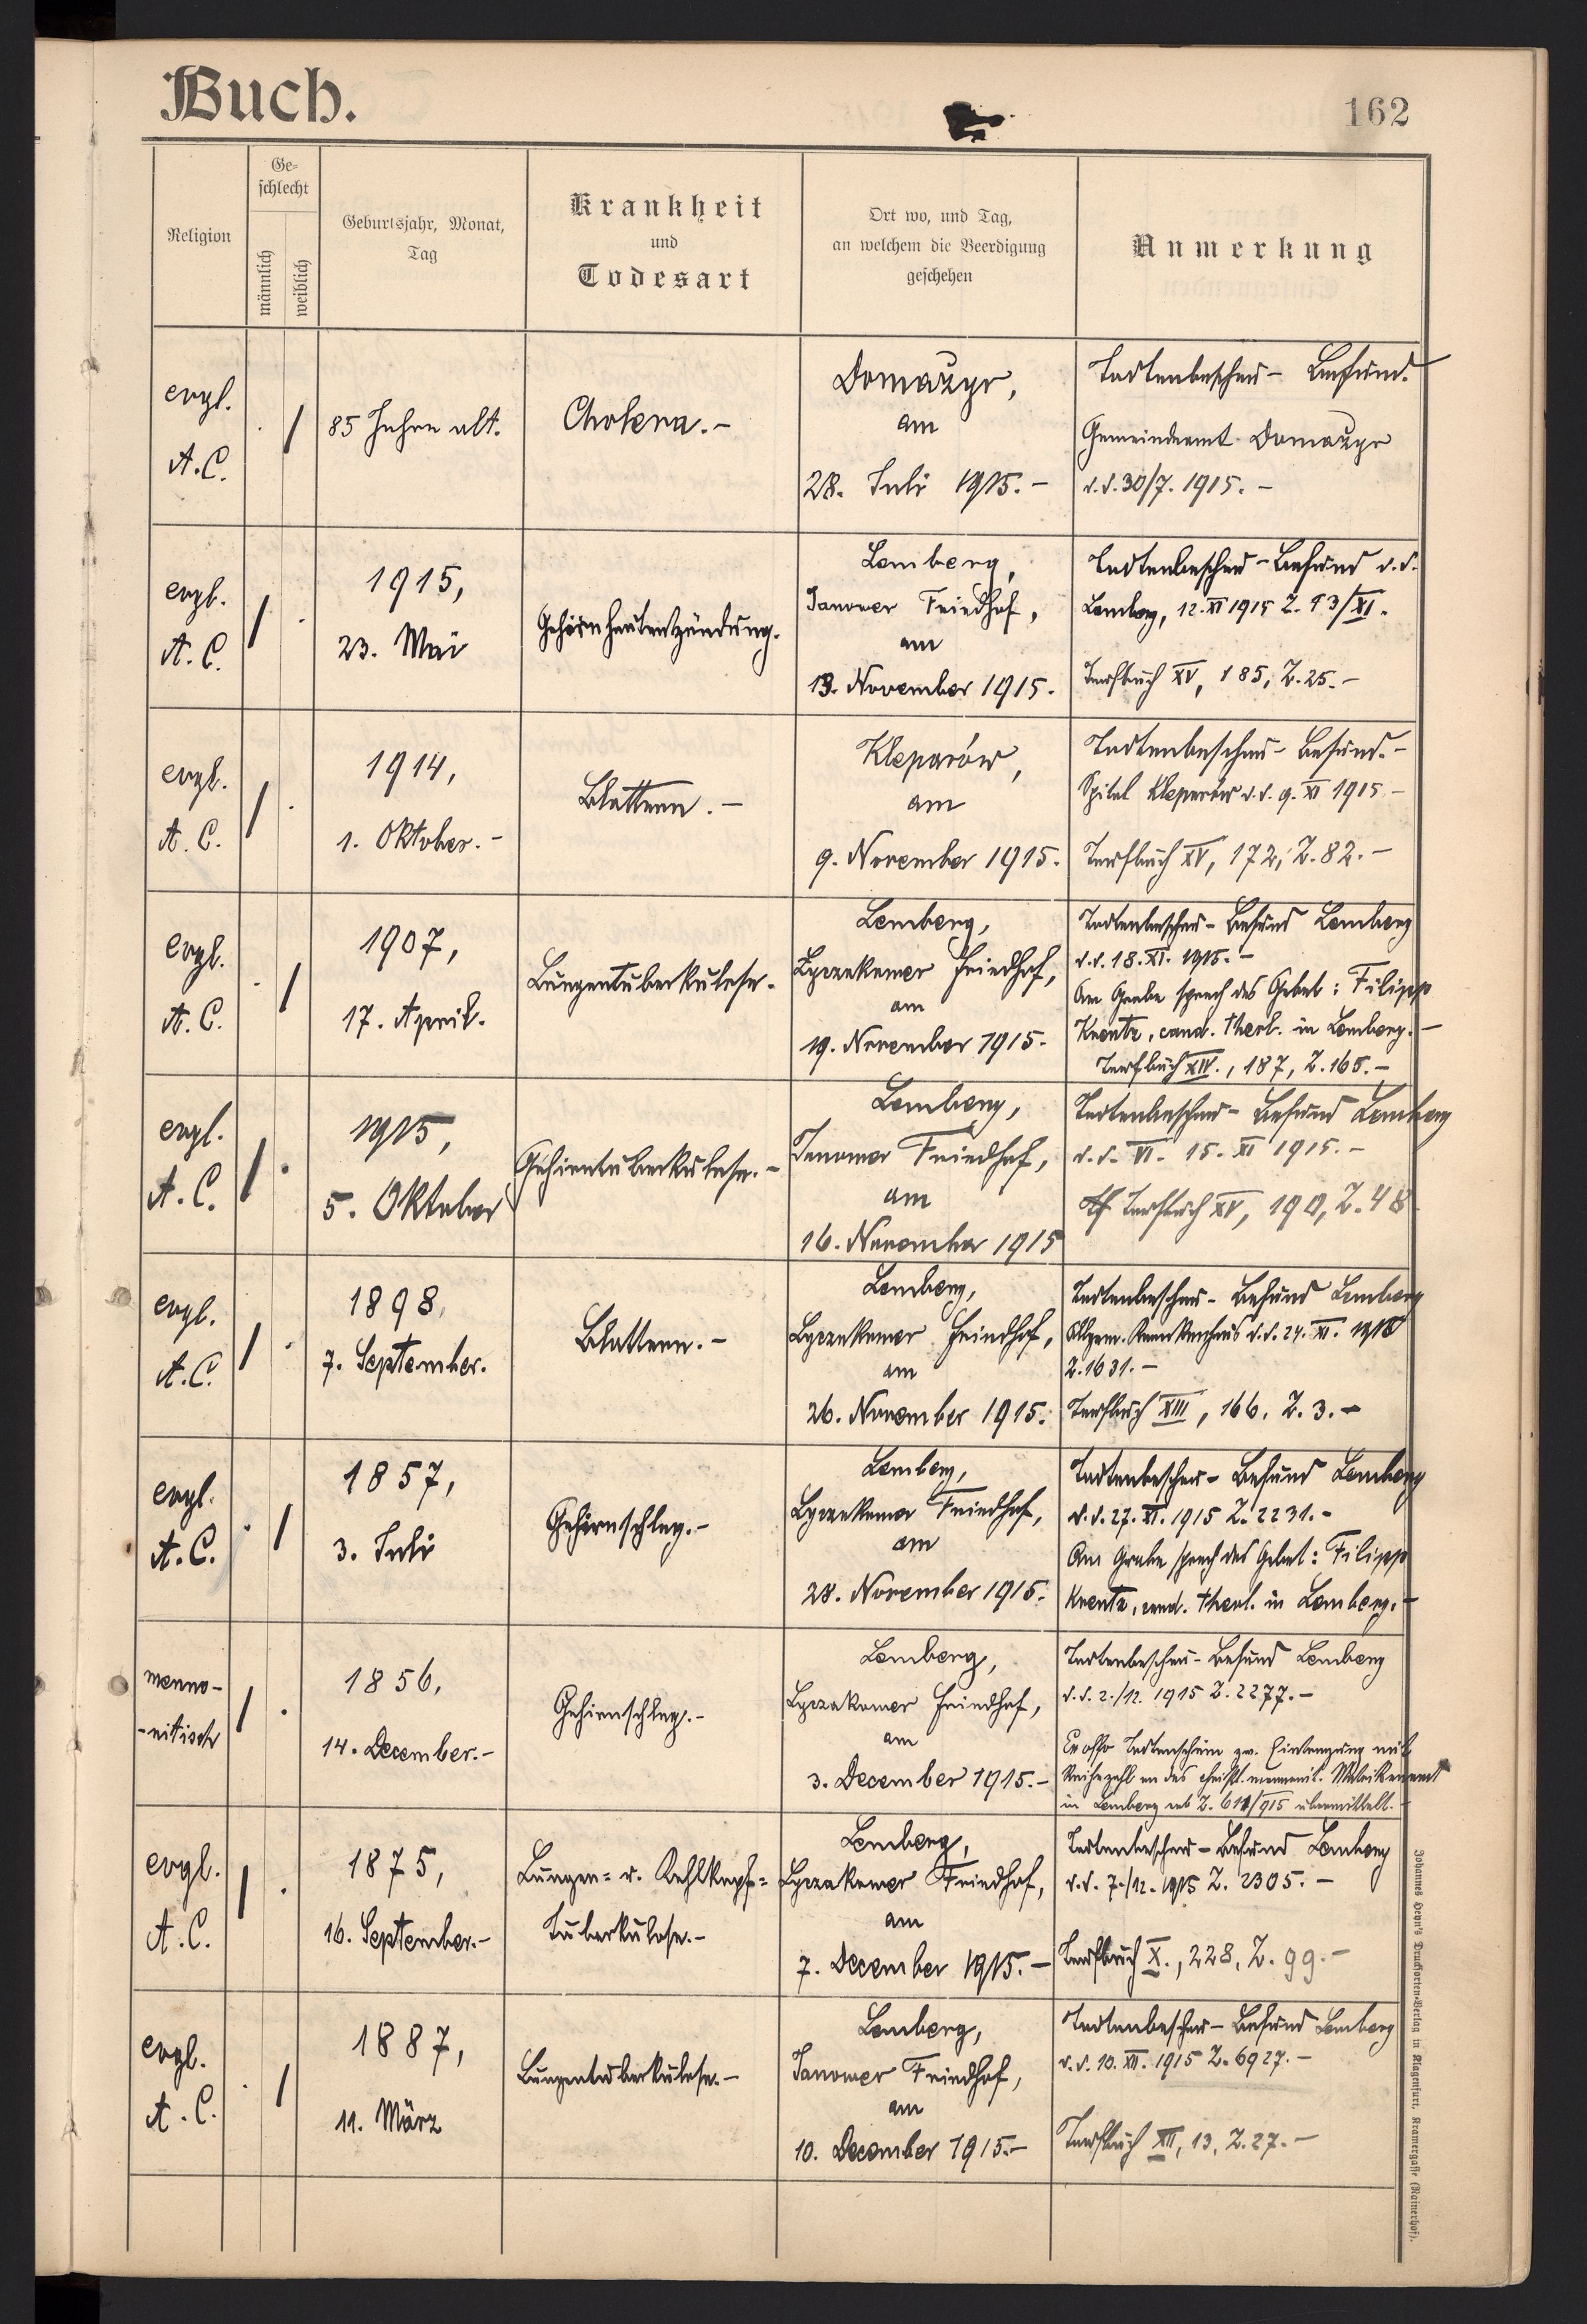 Buch.
162
Religion
Ge-
schlecht
männlich
weiblich
Geburtsjahr, Monat,
Tag
Krankheit
und
Todesart
Ort wo, und Tag,
an welchem die Beerdigung
geschehen
Anmerkung
evgl.
A.C.
85 Jahre alt.
Cholera.-
Domażyr,
am
28. Juli 1915.-
Todtenbeschau- Befund.
Gemeindeamt Domażyr
d.d. 30/7. 1915.-
evgl.
A.C.
1915,
23. Mai
Gehirnhautentzündung.
Lemberg,
Janower Friedhof,
am
13. November 1915.
Todtenbeschau-Befund d.d.
Lemberg, 12. XI 1915 Z. 13/XI.
Taufbuch XV, 185, Z. 25.-
evgl.
A.C.
1914,
1. Oktober.-
Blattern.-
Kleparów,
am
9. November 1915.
Todtenbeschau- Befund.-
Spital Kleparów d.d. 9. XI 1915.-
Taufbuch XV, 172, Z. 82.-
evgl.
A.C.
1907,
17. April.
Lungentuberkulose.
Lemberg,
Lyczakower Friedhof,
am
19. November 1915.
Todtenbeschau- Befund Lemberg
d.d. 18. XI. 1915.-
Am Grabe sprach das Gebet: Filipp
Krentz, cand. theol. in Lemberg.-
Taufbuch XIV., 187, Z. 165.-
evgl.
A.C.
1915,
5. Oktober
Gehirntuberkulose.-
Lemberg,
Janower Friedhof,
am
16. November 1915
Todtenbeschau- Befund Lemberg
d.d. VI. 15. XI 1915.-
Taufbuch XV, 190, Z. 48
evgl.
A.C.
1898,
7. September.
Blattern.-
Lemberg,
Lyczakower Friedhof,
am
26. November 1915.
Todtenbeschau- Befund Lemberg
Allgem. Krankenhaus d.d. 24. XI. 1915
Z. 1631.-
Taufbuch XIII, 166, Z. 3.-
evgl.
A.C.
1857,
3. Juli
Gehirnschlag.-
Lemberg,
Lyczakower Friedhof,
am
28. November 1915.
Todtenbeschau- Befund Lemberg
d.d. 27. XI. 1915 Z. 2231.-
Am Grabe sprach das Gebet: Filipp
Krentz, cand. theol. in Lemberg.-
menno-
-nitisch
1856,
14. December.-
Gehirnschlag.-
Lemberg,
Lyczakower Friedhof,
am
3. December 1915.-
Todtenbeschau- Befund Lemberg
d.d. 2./12. 1915 Z. 2277.-
Ex offo Todtenschein zw. Eintragung mit
Reihezahl an das christl. mennonit. Matrikenamt
in Lemberg sub Z. 611/915 übermittelt.-
evgl.
A.C.
1875,
16. September.-
Lungen- u. Kehlkopf-
tuberkulose.-
Lemberg,
Lyczakower Friedhof,
am
7. December 1915.-
Todtenbeschau- Befund Lemberg
d.d. 7./12. 1915 Z. 2305.-
Taufbuch X., 228, Z. 99.-
evgl.
A.C.
1887,
11. März
Lungentuberkulose.-
Lemberg,
Janower Friedhof,
am
10. December 1915.-
Todtenbeschau- Befund Lemberg
d.d. 10. XII. 1915 Z. 6927.-
Taufbuch XII, 13, Z. 27.-
Johannes Heyn's Drucksorten-Verlag in Klagenfurt, Kramergasse (Rainerhof).